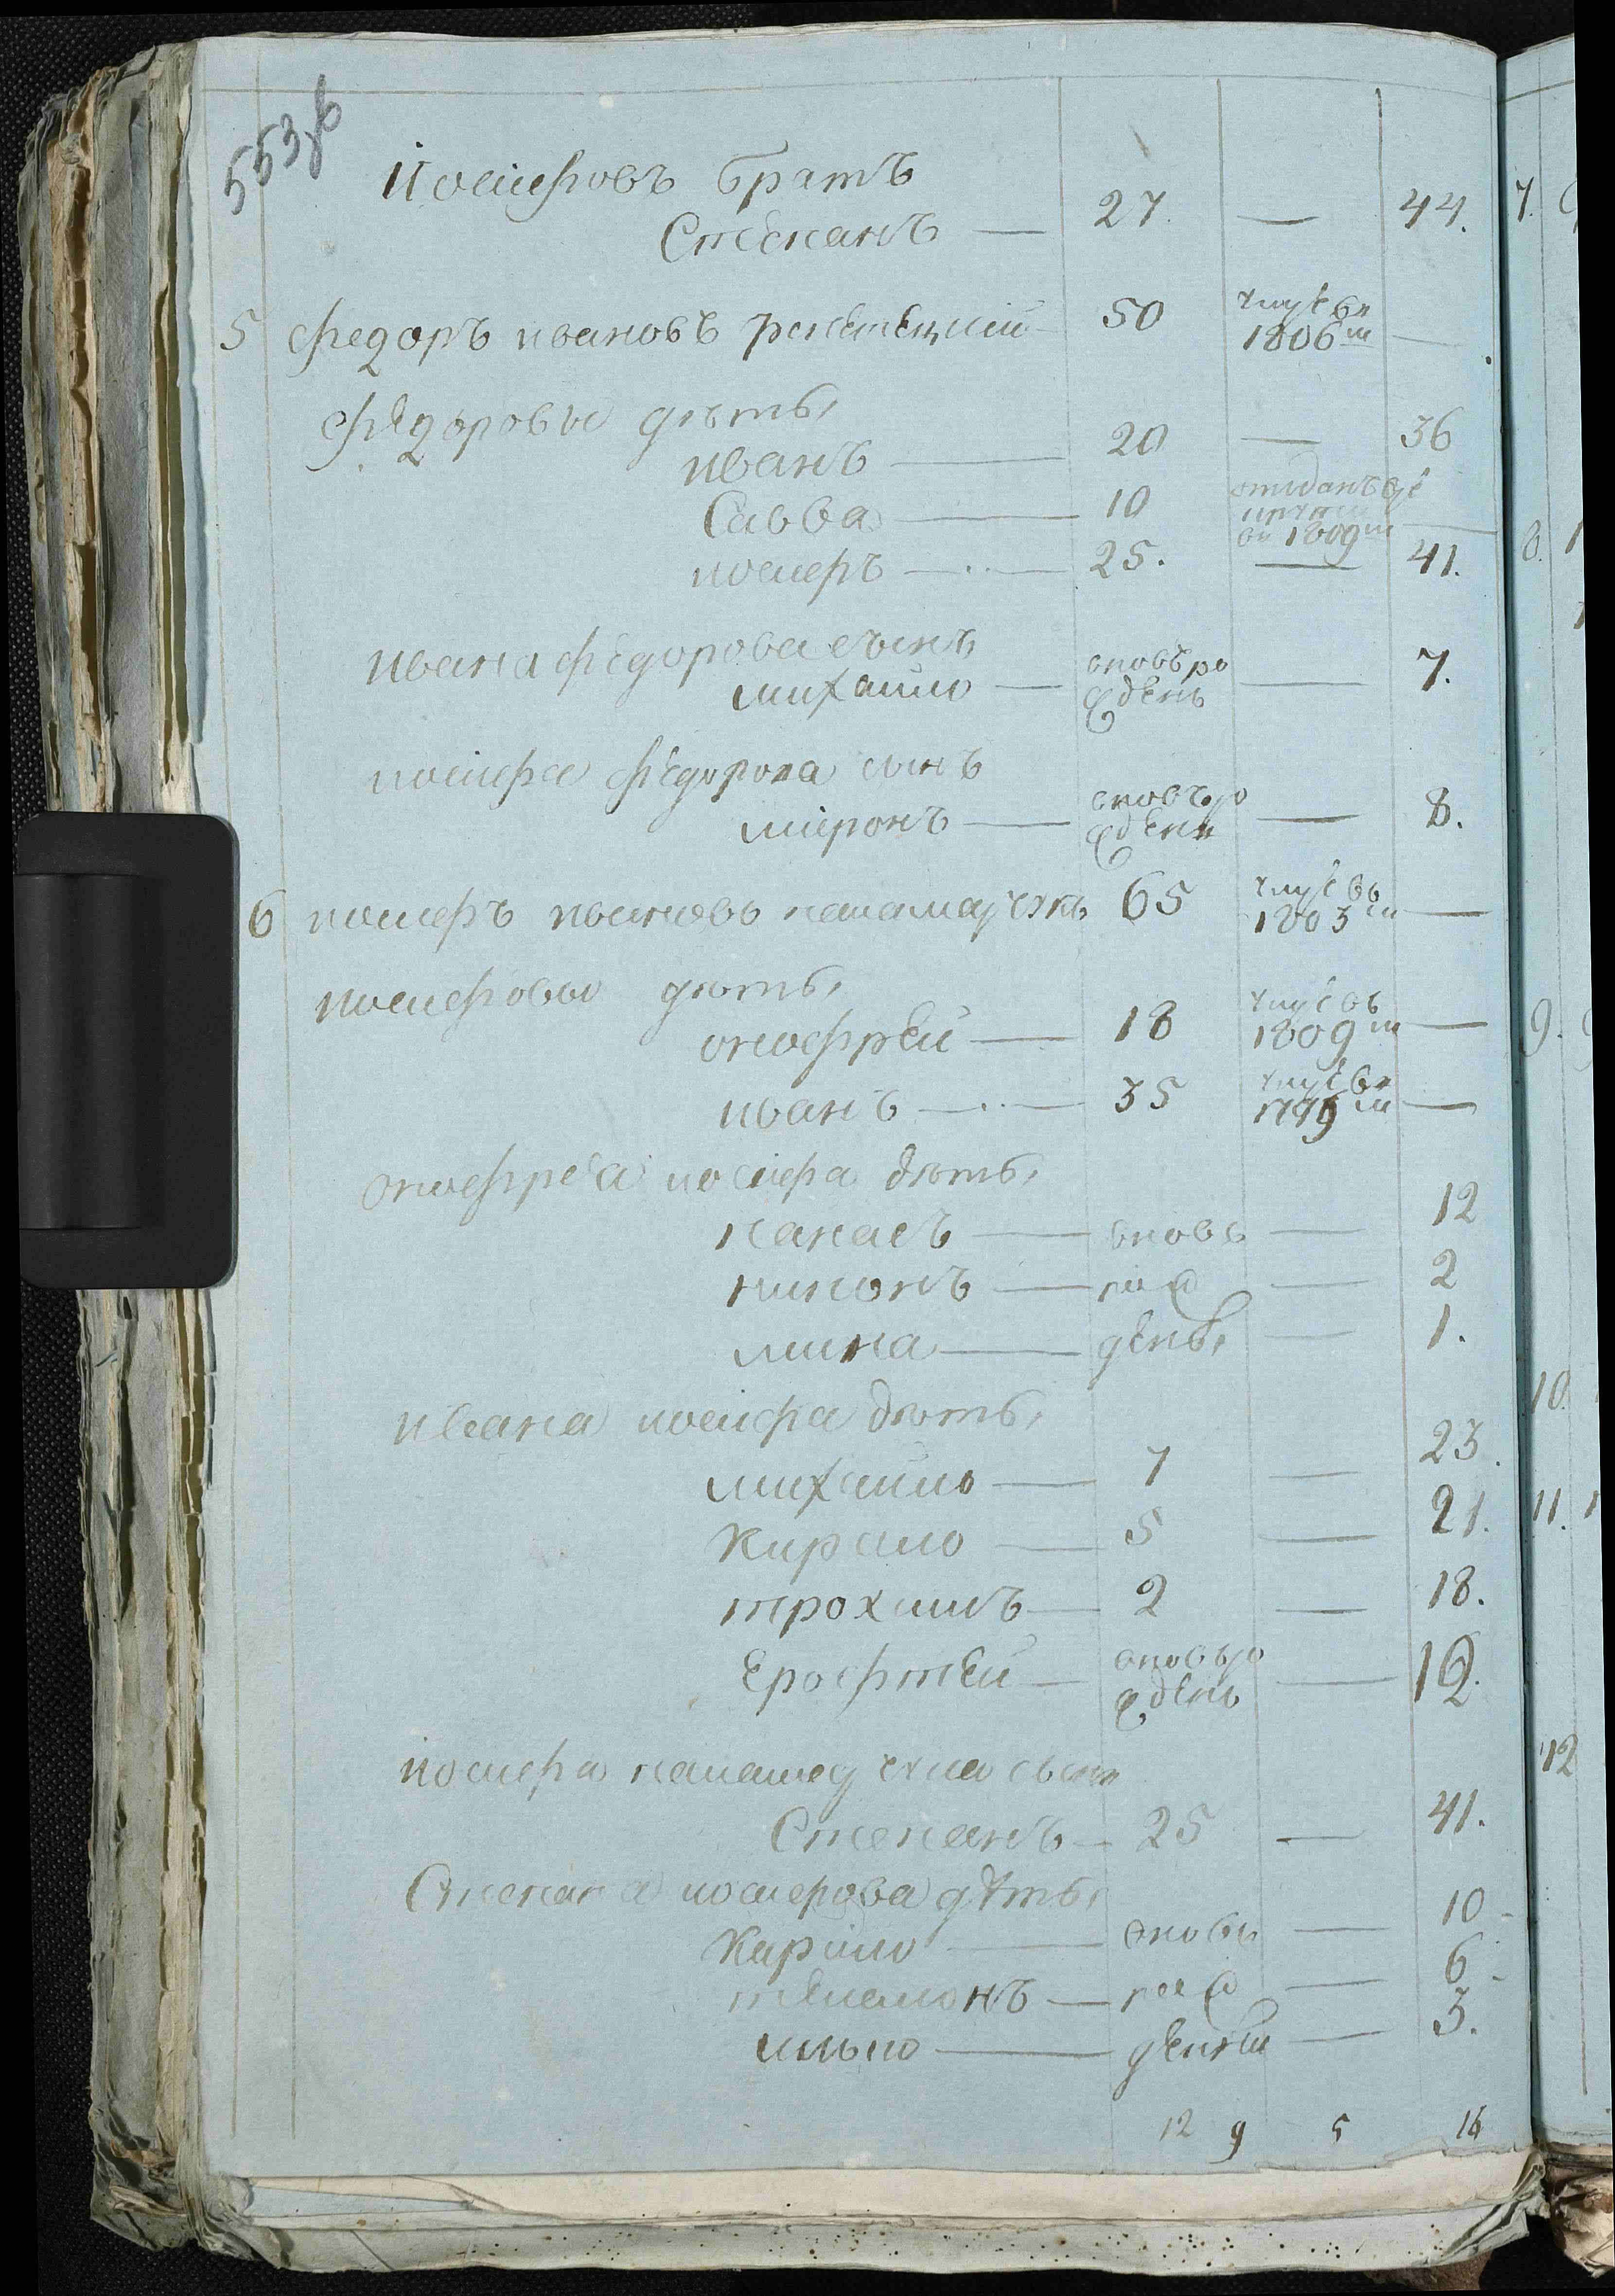 553об
Иосифовъ братъ
Степанъ — 27. — 44.
5 Федоръ ивановъ 50 умре въ 1806м —
Федоровы дѣти,
иванъ — 20 — 36
Савва — 10 отданъ в рекруты въ 1809м —
иосифъ — 25. — 41.
ивана федорова сынъ
михайло — вновь рожденъ — 7.
иосифа федорова сынъ
миронъ — вновь рожденъ — 8.
6 иосифъ ивановъ паламарчукъ 65 умре въ 1803м —
иосифовы дѣти,
онофрей — 18 умре въ 1809м —
иванъ — 35 умре въ 1799м —
онофрея иосифа дѣти,
панасъ — вновь — 12
никонъ — рож — 2
мина — дены, — 1.
ивана иосифа дѣти,
михайло — 7 — 23.
Кирило — 5 — 21.
трохимъ — 2 — 18.
Ерофтей — вновь рожденъ — 12.
иосифа паламарчука сынъ
Степанъ — 25 — 41.
Степана иосифова дѣти,
Кирило — вновь — 10
филимонъ — рож — 6
илько — дены — 3.
12 9 5 16